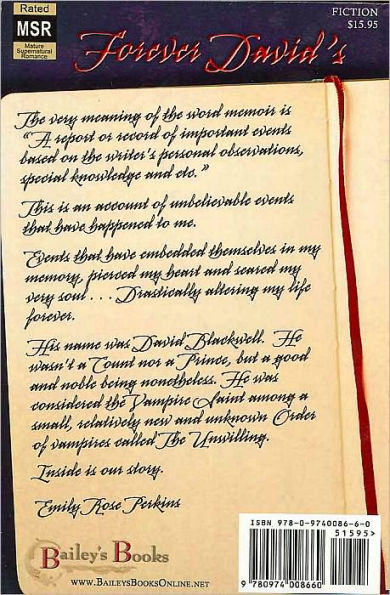 Rated
MSR
Mature
Supernatural
Romance
FICTION
$15.95
Forever David's
The very meaning of the word memoir is
"A report or record of important events
based on the writer's personal observations,
special knowledge and etc."
This is an account of unbelievable events
that have happened to me.
Events that have embedded themselves in my
memory, pierced my heart and seared my
very soul . . . Drastically altering my life
forever.
His name was David Blackwell. He
wasn't a Count nor a Prince, but a good
and noble being nonetheless. He was
considered the Vampire Saint among a
small, relatively new and unknown Order
of vampires called The Unwilling.
Inside is our story.
Emily Rose Perkins
Bailey's Books
www.BaileysBooksOnline.net
ISBN 978-0-9740086-6-0
51595>
9 780974 008660